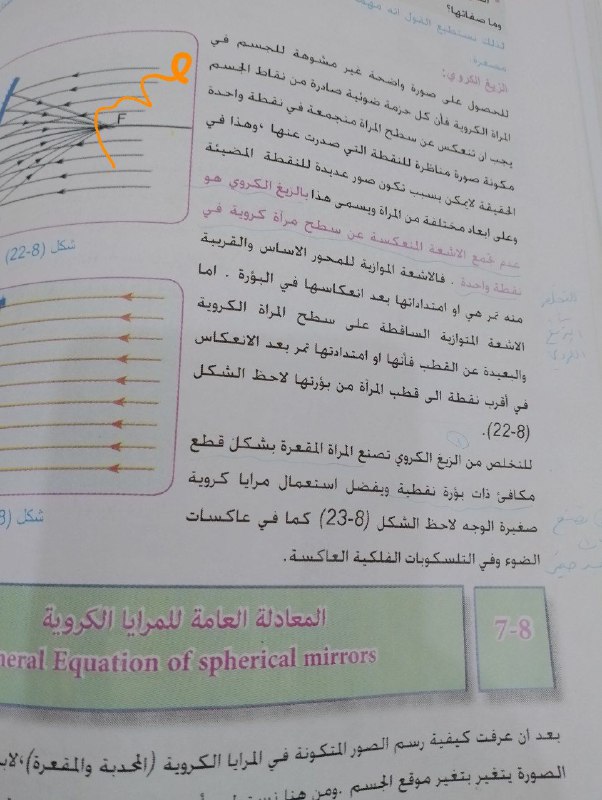 وما صفاتها؟
لذلك نستطيع القول انه
مصغرة.
الزيغ الكروي:
للحصول على صورة واضحة غير مشوهة للجسم في
المرآة الكروية فأن كل حزمة ضوئية صادرة من نقاط الجسم
يجب ان تنعكس عن سطح المرآة متجمعة في نقطة واحدة
مكونة صورة مناظرة للنقطة التي صدرت عنها ،وهذا في
الحقيقة لايمكن بسبب تكون صور عديدة للنقطة المضيئة
وعلى ابعاد مختلفة من المرآة ويسمى هذا بالزيغ الكروي هو
عدم تجمع الاشعة المنعكسة عن سطح مرآة كروية في
نقطة واحدة . فالاشعة الموازية للمحور الاساس والقريبة
منه تمر هي او امتداداتها بعد انعكاسها في البؤرة . اما
الاشعة المتوازية الساقطة على سطح المرآة الكروية
والبعيدة عن القطب فأنها او امتدادتها تمر بعد الانعكاس
في أقرب نقطة الى قطب المرآة من بؤرتها لاحظ الشكل
(8-22).
للتخلص من الزيغ الكروي تصنع المرآة المقعرة بشكل قطع
مكافئ ذات بؤرة نقطية ويفضل استعمال مرايا كروية
صغيرة الوجه لاحظ الشكل (8-23) كما في عاكسات
الضوء وفي التلسكوبات الفلكية العاكسة.
F
شكل (8-22)
شكل (8
7-8
المعادلة العامة للمرايا الكروية
neral Equation of spherical mirrors
بعد ان عرفت كيفية رسم الصور المتكونة في المرايا الكروية (المحدبة والمقعرة)،
الصورة يتغير بتغير موقع الجسم .ومن هنا